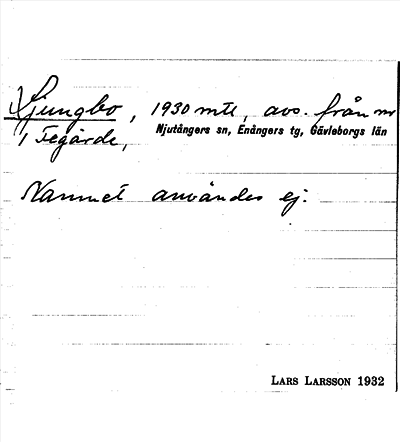 Ljungbo, 1930 mtl, avs. från nr
1 Tegärde,
Njutångers sn, Enångers tg, Gävleborgs län
Namnet användes ej.
LARS LARSSON 1932